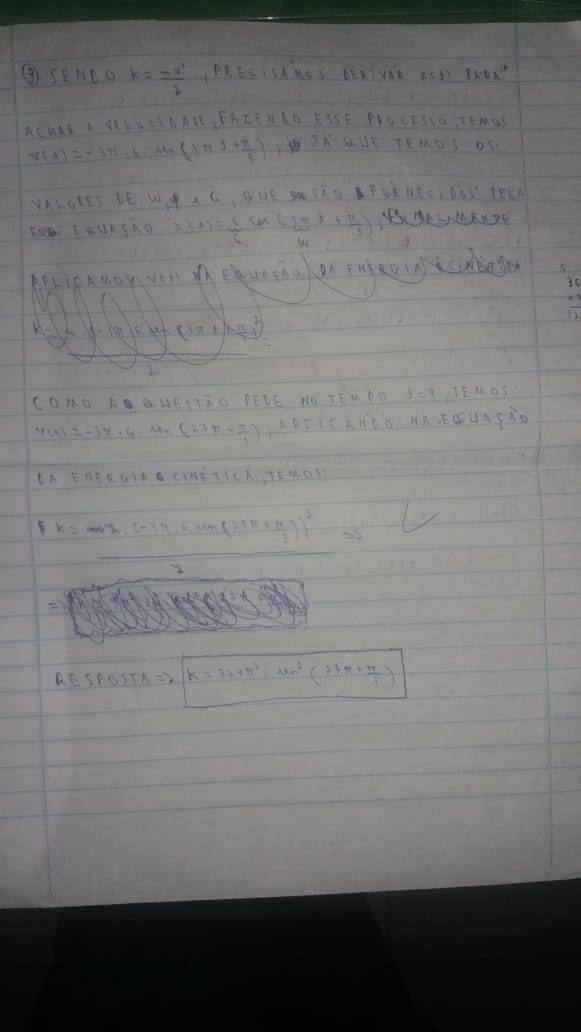 ③ SENDO K = mv²/2, PRECISAMOS DERIVAR x(t) PARA
ACHAR A VELOCIDADE, FAZENDO ESSE PROCESSO, TEMOS:
v(t) = -3π . 6 . sen (3π t + π/3), JÁ QUE TEMOS OS
VALORES DE W, φ e A, QUE SÃO FORNECIDOS PELA
EQUAÇÃO x(t) = 6 cos (3π t + π/3), FINALMENTE
W
APLICAMOS v(t) NA EQUAÇÃO DA ENERGIA CINÉTICA
K = (-3π . 6 . sen (3π + π/3)²/2 =
COMO A QUESTÃO PEDE NO TEMPO t = 9, TEMOS:
= -3π . 6 . sen (27π + π/3), APLICANDO NA EQUAÇÃO
DA ENERGIA CINÉTICA, TEMOS:
K = 2 . (-3π . 6 . sen (27π + π/3))²/2 =>
=>
RESPOSTA => K = 324π² . sen² (27π + π/3)